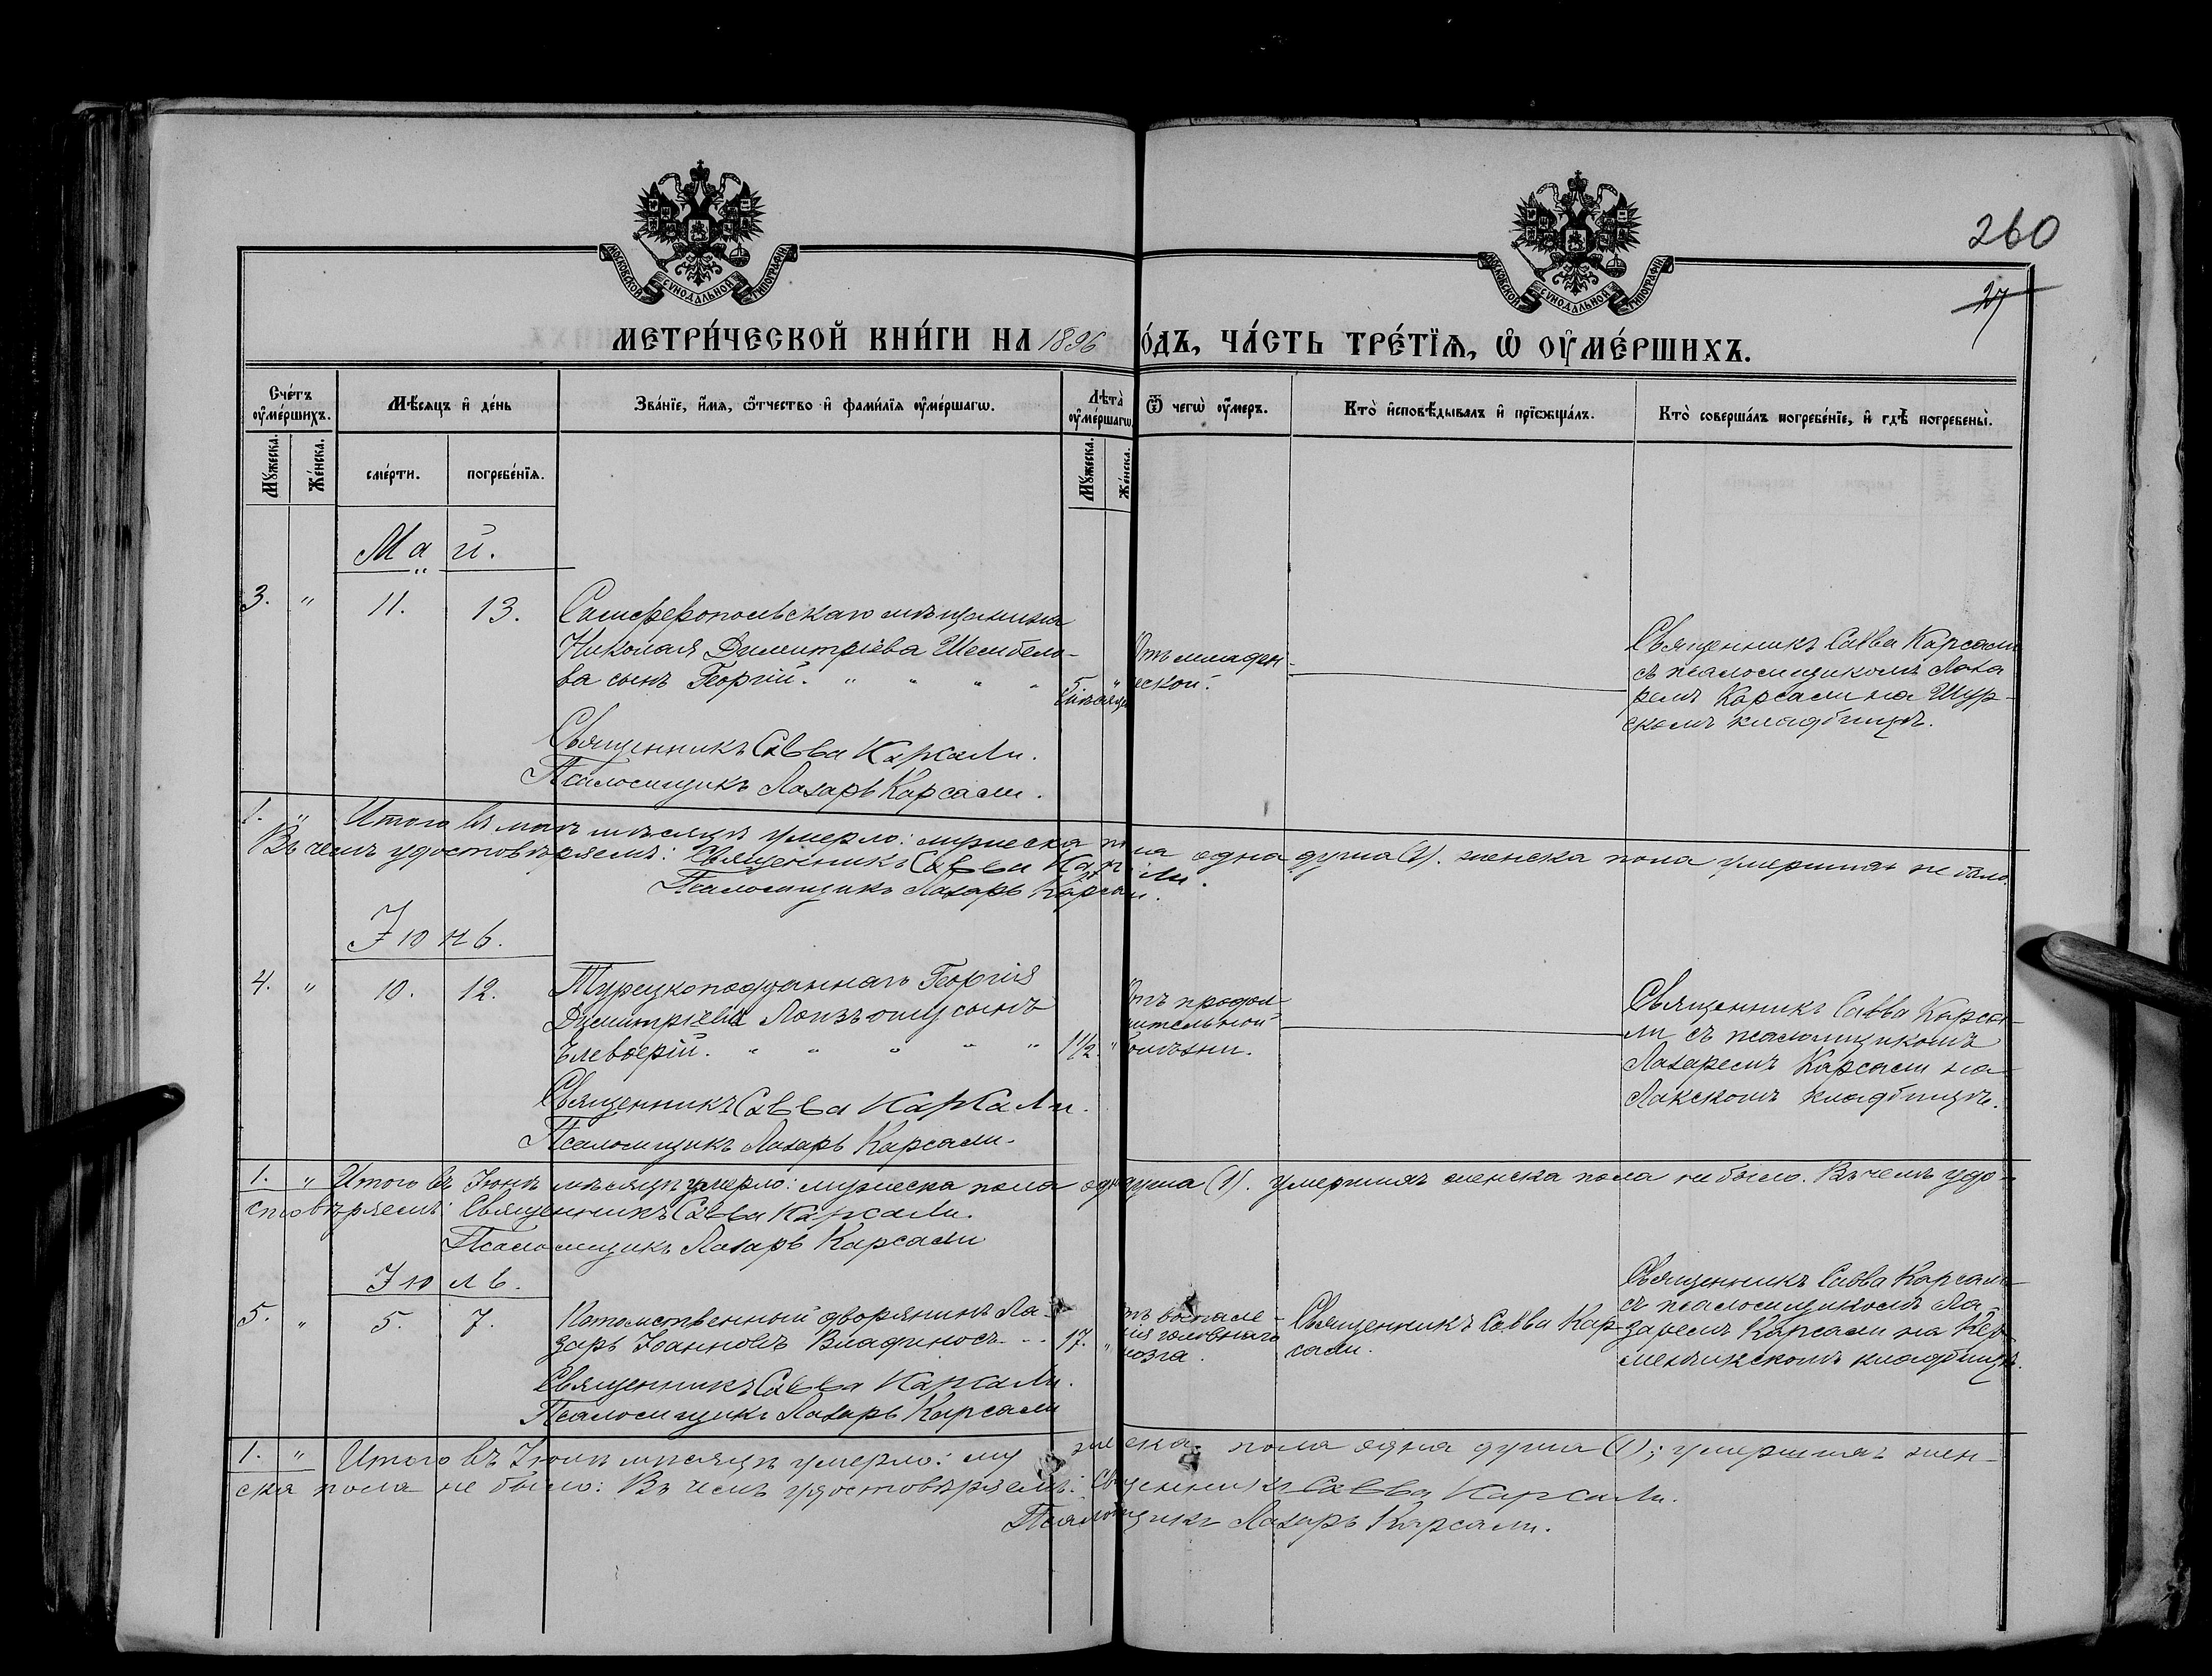 МОСКОВСКОЙ СѴНОДАЛЬНОЙ ТИПОГРАФІИ
МОСКОВСКОЙ СѴНОДАЛЬНОЙ ТИПОГРАФІИ
260
27
МЕТРИ́ЧЕСКОЙ КНИ́ГИ НА 1896
О́ДЪ, ЧА́СТЬ ТРЕ́ТІѦ, Ѡ҆ ОУ҆МЕ́РШИХЪ.
Сче́тъ оу҆ме́ршихъ.
Мѣ́сѧцъ и҆ де́нь
Зва́нїе, и҆́мѧ, ѻ҆́тчество и҆ фами́лїѧ оу҆ме́ршагѡ.
Лѣ́та оу҆ме́ршагѡ
Ѿ чегѡ̀ оу҆́меръ.
Кто̀ и҆сповѣ́дывалъ и҆ прїѡбща́лъ.
Кто̀ соверша́лъ погребе́нїе, и҆ гдѣ̀ погребены̀.
Мꙋ́жеска.
Же́нска.
сме́рти.
погребе́нїѧ.
Мꙋ́жеска.
Же́нска.
Май.
3. " 11. 13. Симферопольскаго мѣщанина
Николая Димитріева Шембело-
ва сынъ Георгій. " " " "
5 мѣсяц
Отъ младен-
еской.
Священникъ Савва Карсали
съ псаломщикомъ Лаза
ремъ Карсали на Шур-
скомъ кладбищѣ.
Священникъ Савва Карсали.
Псаломщикъ Лазарь Карсали.
1. " Итого въ маѣ мѣсяцѣ умерло: мужеска пола одна душа (1). женска пола умершихъ не было.
Въ чемъ удостовѣряемъ: Священникъ Савва Карсали.
Псаломщикъ Лазарь Карсали.
Іюнь.
4. " 10. 12. Турецкоподданнаго Георгія
Димитріева сынъ
Ѣлевѳерій. " " " " " 1 1/2. "
Отъ продол-
жительной
болѣзни.
Священникъ Савва Карса-
ли съ псаломщикомъ
Лазаремъ Карсали на
Лакскомъ кладбищѣ.
Священникъ Савва Карсали.
Псаломщикъ Лазарь Карсали.
1. " Итого въ Іюнѣ мѣсяцѣ умерло: мужеска пола одн душа (1). умершихъ женска пола не было. Въ чемъ удо-
стовѣряемъ: Священникъ Савва Карсали.
Псаломщикъ Лазарь Карсали
Іюль.
5. " 5. 7. Потомственный дворянинъ Ла-
зарь Іоанновъ Влафиносъ 17. "
тъ воспале-
нія головнаго
мозга.
Священникъ Савва Кар-
сали.
Священникъ Савва Карсали
съ псаломщикомъ Ла-
заремъ Карсали на Кер-
менчикскомъ кладбищѣ.
Священникъ Савва Карсали.
Псаломщикъ Лазарь Карсали
1. " Итого въ Іюлѣ мѣсяцѣ умерло: мужеска пола одна душа (1); умершихъ жен-
ска пола не было: Въ чемъ удостовѣряемъ: Священникъ Савва Карсали.
Псаломщикъ Лазарь Карсали.